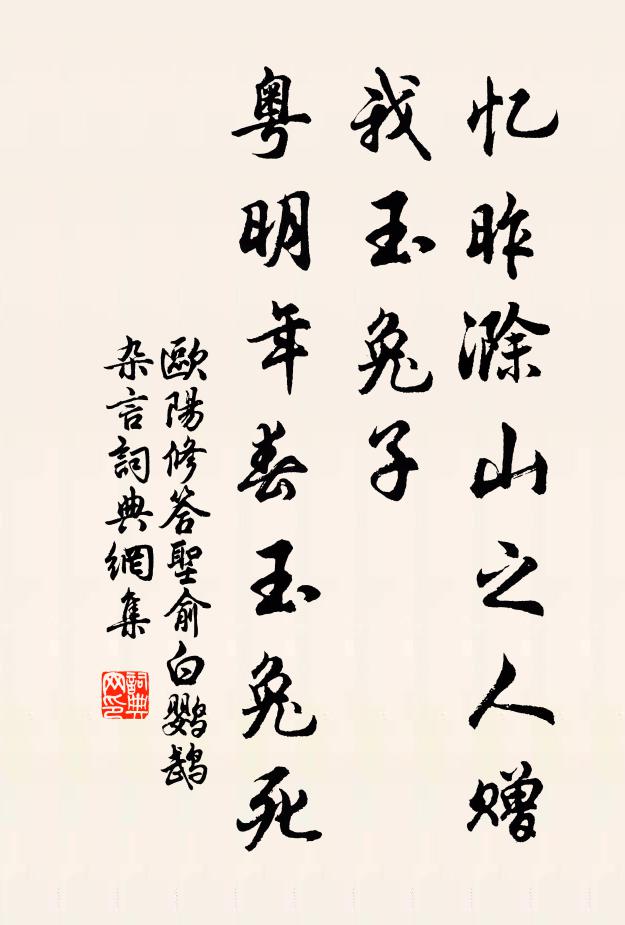 忆昨滁山之人赠
我玉兔子
粤明年春玉兔死
歐陽修答聖俞白鹦鹉
杂言詞典網集
詞典
网印